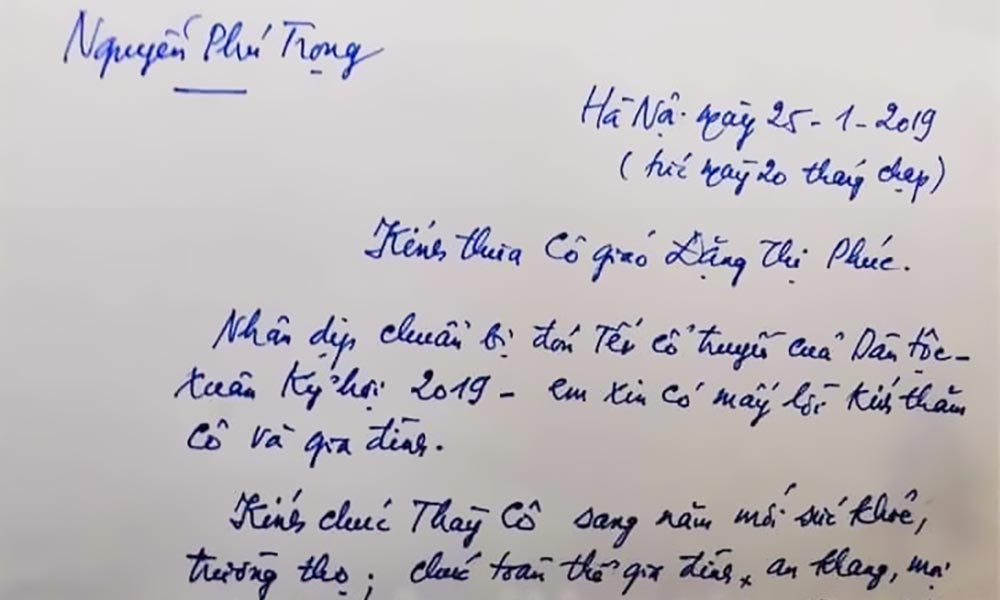 Nguyễn Phú Trọng
Hà Nội ngày 25-1-2019
(tức ngày 20 tháng chạp)
Kính thưa Cô giáo Đặng Thị Phúc.
Nhân dịp chuẩn bị đón Tết cổ truyền của Dân tộc -
Xuân Kỷ hợi 2019 - em xin có mấy lời kính thăm
Cô và gia đình.
Kính chúc Thầy Cô sang năm mới sức khoẻ,
trường thọ; chúc toàn thể gia đình, an khang, mọi